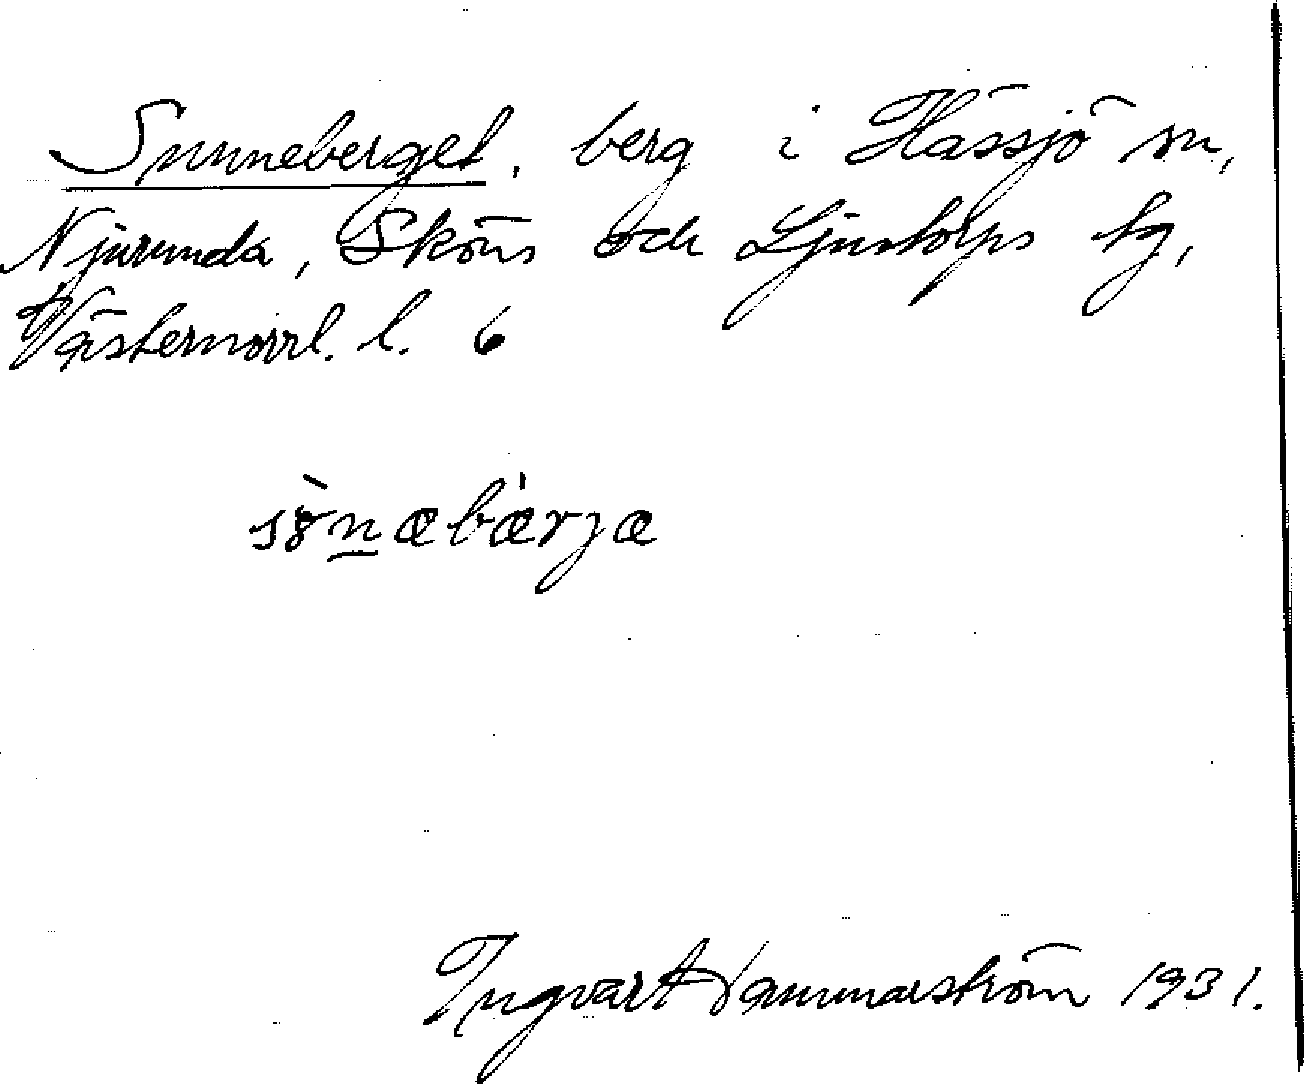 Sunneberget, berg i Hässjö sn,
Njurunda, Sköns och Ljustorps tg,
Västernorrl. l. 6
sònæbærja
Ingvart Hammarström 1931.